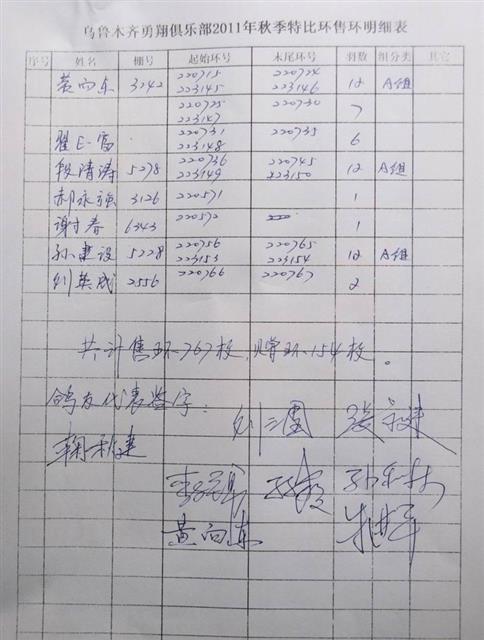 乌鲁木齐勇翔俱乐部2011年秋季特比环售环明细表
序号 姓名 棚号 起始环号 末尾环号 羽数 组分类 其它
黄向东 3242 220715 220724 12 A组
223145 223146
220725 220730 7
223147
220731 220735 6
223148
段清涛 5278 220736 220745 12 A组
223149 223150
郝永强 3126 220571 1
谢才春 6343 220572 1
孙建设 5228 220756 220765 12 A组
223153 223154
刘英成 2556 220766 220767 2
共计售环767枚,赠环154枚。
鸽友代表签字:
黄向东